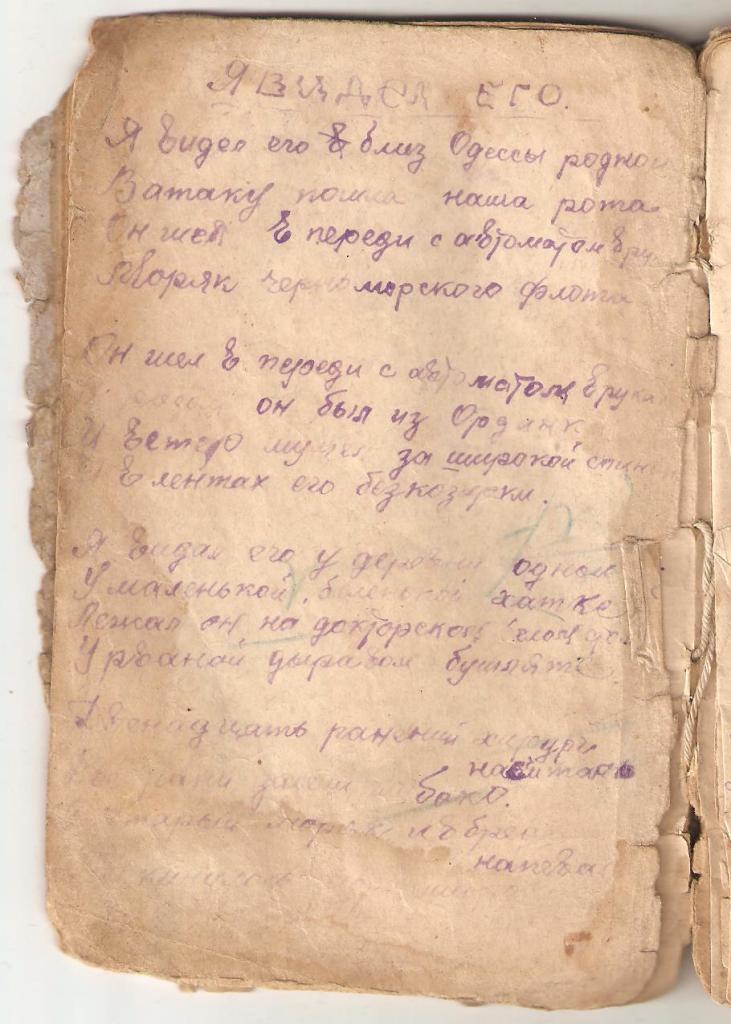 Я ВИДЕЛ ЕГО.
Я видел его в близ Одессы родной
В атаку пошла наша рота
Он шел в переди с автоматом в рук
Моряк черноморского флота
Он шел в переди с автоматом в рука
он был из Ордынк
И ветер за широкой спин
В лентах его безкозырки.
Я видал его у деревни одной
У маленькой хатке
Лежал он на докторской
У рваной дыравом бушлате
Двенадцать ранений хирург
насчитал
боко.
старый моряк в бре
напева